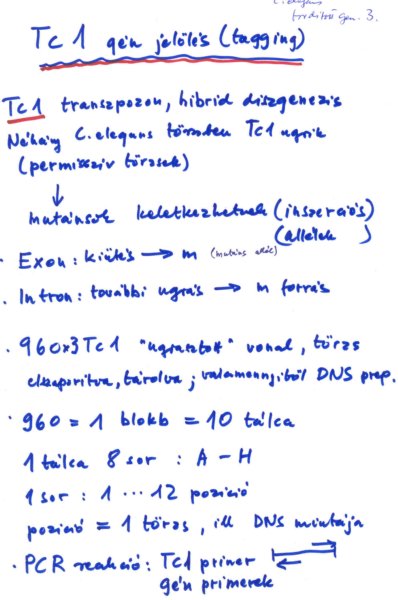 C. elegans
fordított gen. 3.
Tc1 gén jelölés (tagging)
Tc1 transzpozon, hibrid diszgenezis
Néhány C. elegans törzsben Tc1 ugrik
(permisszív törzsek)
↓
mutánsok keletkezhetnek (inszerciós)
(allélek )
· Exon: kiütés → m (mutáns allél)
· Intron: további ugrás → m forrás
· 960x3 Tc1 "ugrasztott" vonal, törzs
elszaporítva, tárolva; valamennyitől DNS prep.
· 960 = 1 blokk = 10 tálca
1 tálca 8 sor : A - H
1 sor : 1 ... 12 pozíció
pozíció = 1 törzs, ill DNS mintája
· PCR reakció: Tc1 primer
gén primerek